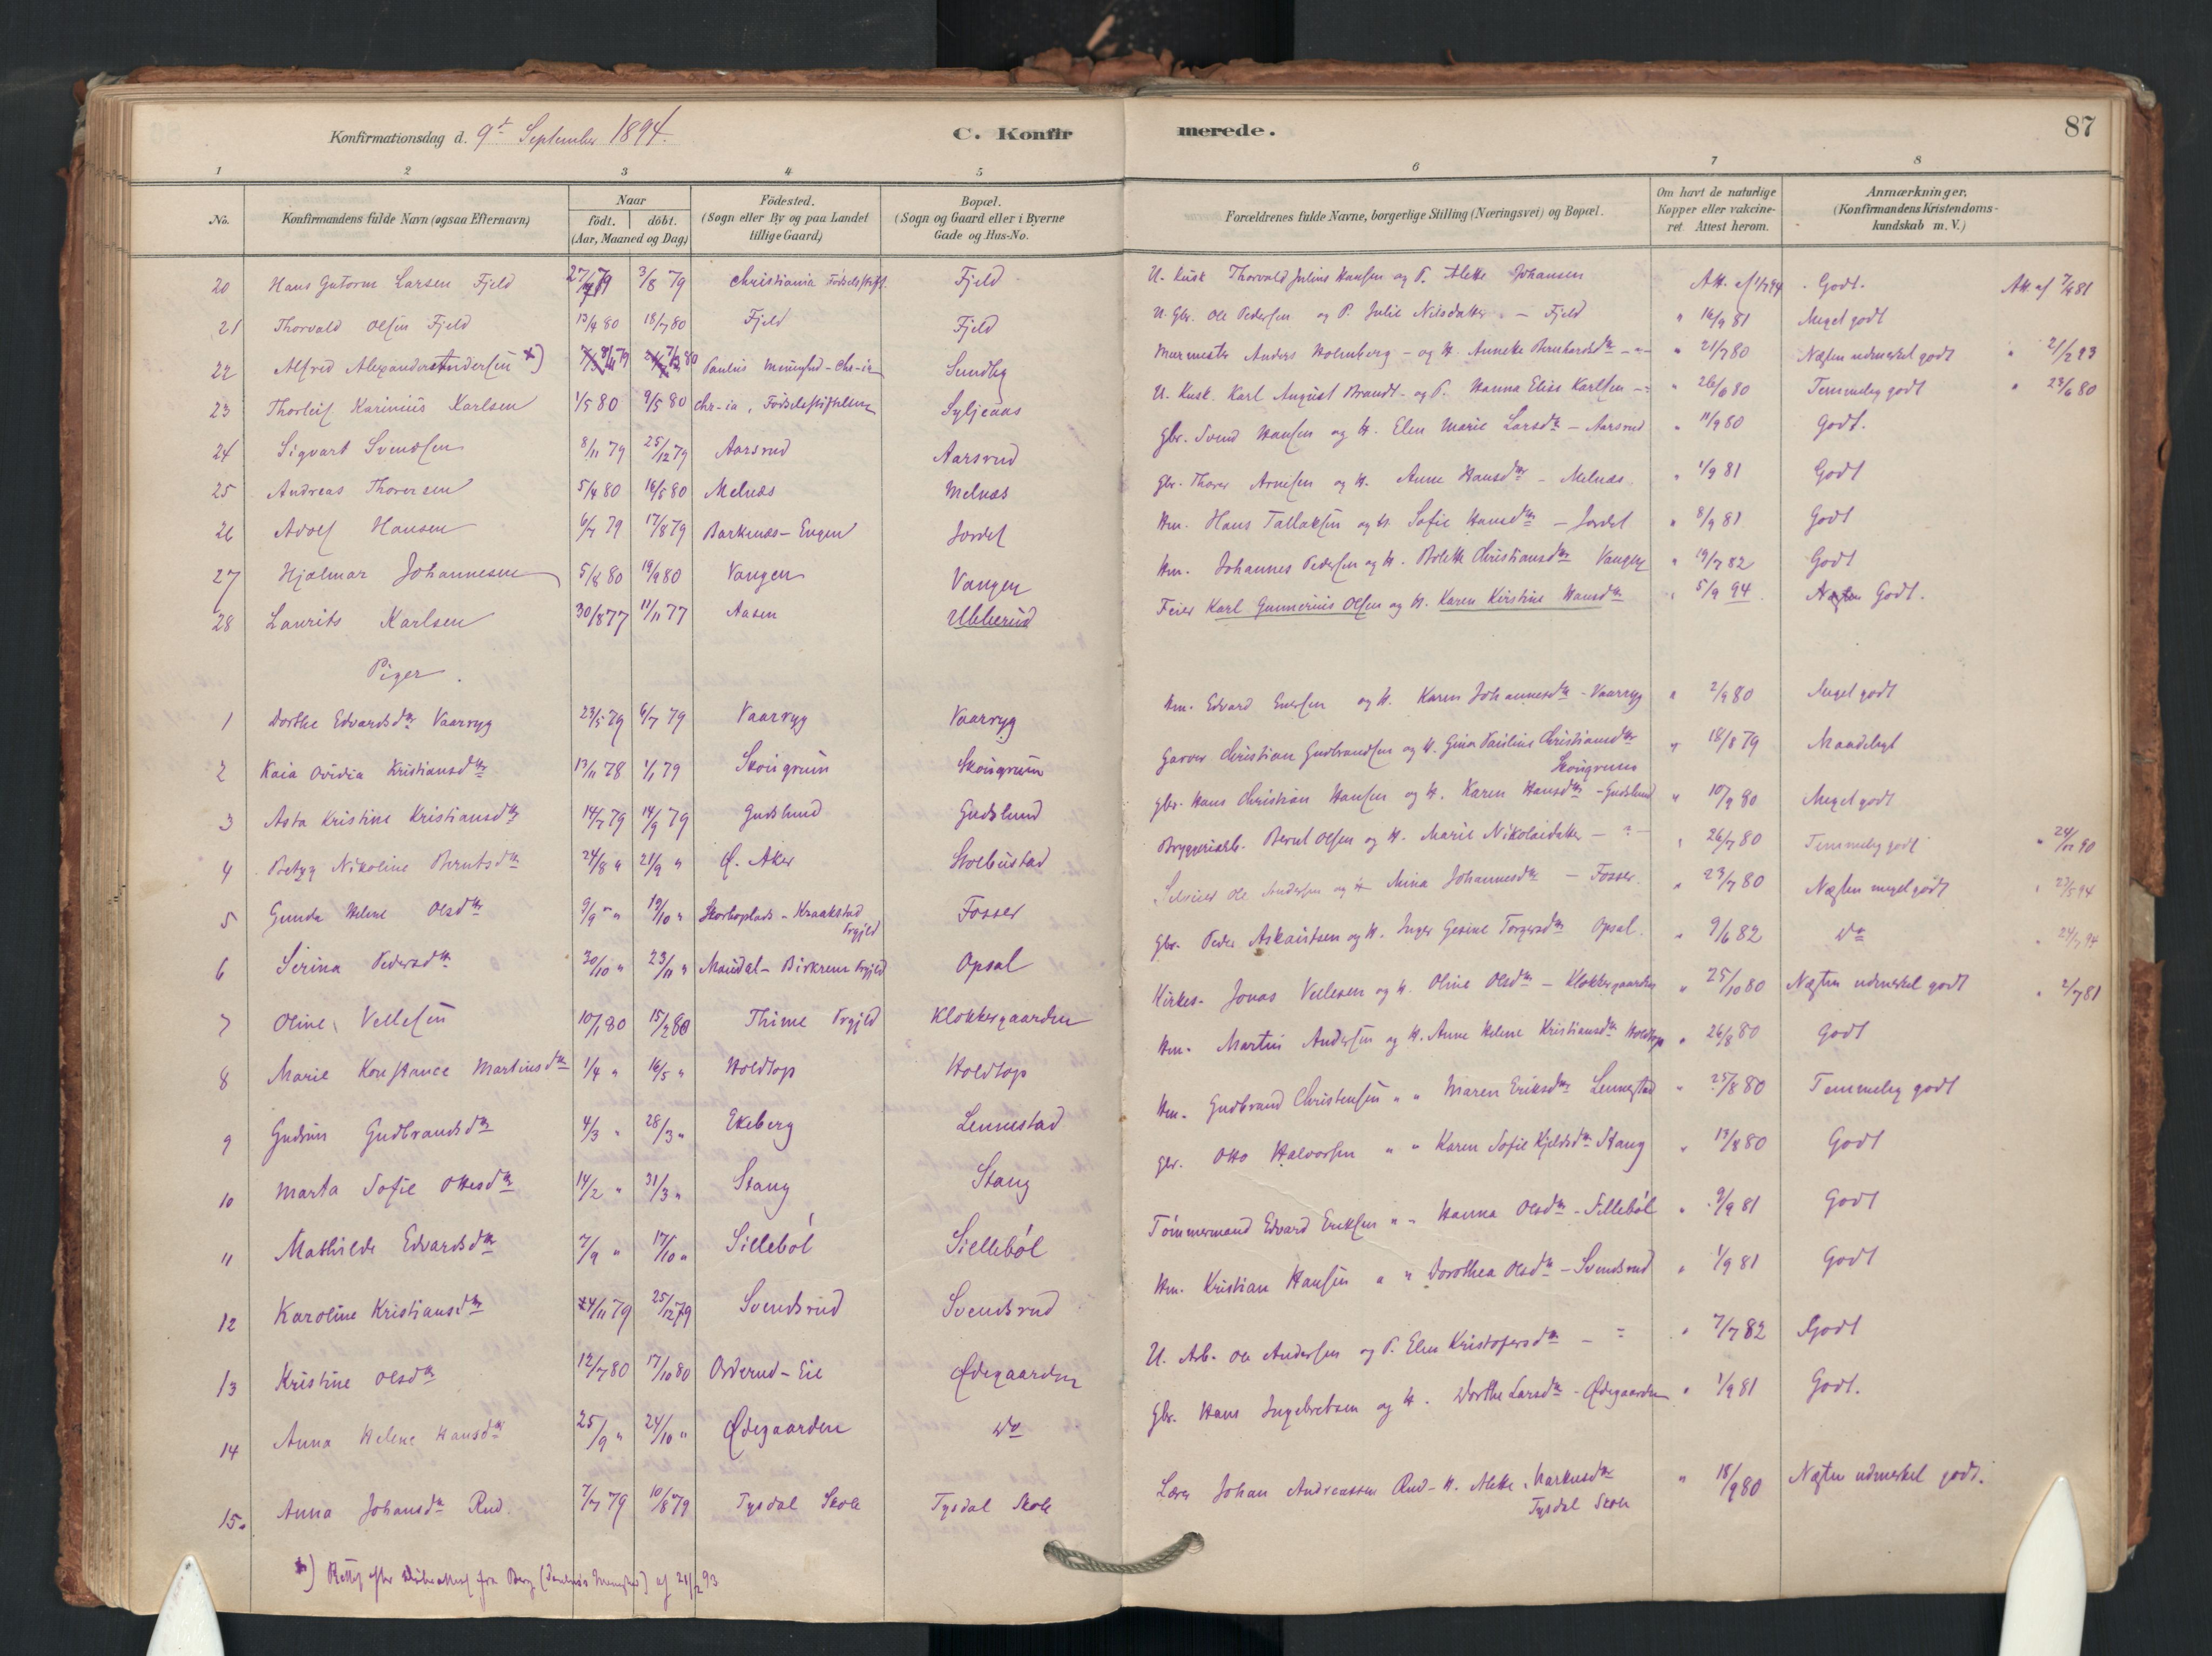 Konfirmationsdag d. 9de September 1894.
C. Konfirmerede.
87
1 2 3 4 5 6 7 8
No. Konfirmandens fulde Navn (ogsaa Efternavn) Naar födt. döbt. (Aar, Maaned og Dag) Födested. (Sogn eller By og paa Landet tillige Gaard) Bopæl. (Sogn og Gaard eller i Byerne Gade og Hus-No. Forældrenes fulde Navne, borgerlige Stilling (Næringsvei) og Bopæl. Om havt de naturlige Kopper eller vakcineret. Attest herom. Anmærkninger. (Konfirmandens Kristendomskundskab m. V.)
20 Hans Gutorm Larsen Fjeld 27/7 79 3/8 79 Christiania Födselsstift. Fjeld U. Kusk Thorvald Julius Hansen og P. Alette Johansen Att. af 1/7 94 Godt. Att af 7/4 81
21 Thorvald Olsen Fjeld 13/4 80 18/7 80 Fjeld Fjeld U. Gbr. Ole Pedersen og P. Julie Nilsdatter - Fjeld " 16/9 81 Meget godt
22 Alfred Alexander Andersen *) Paulus Menighed - Chr-ia Sundby Murmester Anders Holmberg - og H. Annette Bernhardsdtr - " - " 21/7 80 Næsten udmerket godt " 21/2 93
23 Thorleif Karinius Karlsen 1/5 80 9/5 80 Chr-ia, Födselsstiftelsen Syljeaas U. Kusk. Karl August Brandt - og P. Hanna Elise Karlsen - " 26/6 80 Temmelig godt " 23/6 80
24 Sigvart Svendsen 8/11 79 25/12 79 Aarsrud Aarsrud Gbr. Svend Hansen og H. Elen Marie Larsdtr - Aarsrud " 11/9 80 Godt.
25 Andreas Thoresen 5/4 80 16/5 80 Melnæs Melnæs Gbr. Thorer Arnesen og H. Anne Hansdtr - Melnæs " 1/9 81 Godt
26 Adolf Hansen 6/7 79 17/8 79 Barknæs - Engen Jordet Hm. Hans Tallaksen og H. Sofie Hansdtr - Jordet " 8/9 81 Godt
27 Hjalmar Johannesen 5/8 80 19/9 80 Vangen Vangen Hm. Johannes Pedersen og H. Bolette Christiansdtr Vangen " 19/7 82 Godt
28 Laurits Karlsen 30/8 77 11/11 77 Aasen Ubberud Feier Karl Gunnerius Olsen og H. Karen Kirstine Hansdtr " 5/9 94 Godt.
Piger.
1 Dorthe Edvardsdtr Vaarryg 23/5 79 6/7 79 Vaarryg Vaarryg Hm. Edvard Enersen og H. Karen Johannesdtr - Vaarryg " 2/9 80 Meget godt
2 Kaia Ovidia Kristiansdtr 13/11 78 1/1 79 Skougrum Skougrum Garver Christian Gudbrandsen og H. Gina Pauline Christiansdtr Skougrum " 18/8 79 Maadeligt
3 Asta Kristine Kristiansdtr 14/7 79 14/9 79 Gudslund Gudslund Gbr. Hans Christian Hansen og H. Karen Hansdtr - Gudslund " 10/9 80 Meget godt
4 Betzy Nikoline Berntsdtr 24/8 " 21/9 " Ø. Aker Stolbustad Bryggeriarb. Bernt Olsen og H. Marie Nikolaidatter - " - " 26/7 80 Temmelig godt " 24/11 90
5 Gunda Helene Olsdtr 9/9 " 19/10 " Skorboplads - Kraakstad Prgjld Fosser Selveier Ole Andersen og H. Mina Johannesdtr - Fosser. " 23/7 80 Næsten meget godt " 23/5 94
6 Serina Pedersdtr 30/10 " 23/11 " Maudal - Birkrem Prgjld Opsal Gbr. Peder Askautsen og H. Inger Gesine Torgersdtr Opsal. " 9/6 82 Do " 24/7 94
7 Oline Vellesen 10/1 80 15/2 80 Thime Prgjld Klokkergaarden Kirkes. Jonas Vellesen og H. Oline Olsdtr - Klokkergaarden " 25/10 80 Næsten udmerket godt " 2/7 81
8 Marie Konstance Martinsdtr 1/4 " 16/5 " Holdtop Holdtop Hm. Martin Andersen og H. Anne Helene Kristiansdtr Holdtop " 26/8 80 Godt
9 Gudrun Gudbrandsdtr 4/3 " 28/3 " Ekeberg Lennestad Hm. Gudbrand Christensen " " Maren Eriksdtr Lennestad " 25/8 80 Temmelig godt
10 Marta Sofie Ottesdtr 14/2 " 31/3 " Stang Stang Gbr. Otto Halvorsen " " Karen Sofie Kjeldsdtr Stang " 13/8 80 Godt
11 Mathilde Edvardsdtr 7/9 " 17/10 " Silleból Silleból Tömmermand Edvard Eriksen " " Hanna Olsdtr - Silleból " 9/9 81 Godt
12 Karoline Kristiansdtr 24/11 79 25/12 79 Svendsrud Svendsrud Hm. Kristian Hansen " " Dorothea Olsdtr - Svendsrud " 1/9 81 Godt
13 Kristine Olsdtr 12/7 80 17/10 80 Orderud - Eie Ødegaarden U. Arb. Ole Andersen og P. Elen Kristofersdtr - " " 7/7 82 Godt
14 Anna Helene Hansdtr 25/9 " 24/10 " Ødegaarden Do Gbr. Hans Ingebretsen og H. Dorthe Larsdtr - Ødegaarden " 1/9 81 Godt.
15. Anna Johansdtr Rud. 7/7 79 10/8 79 Tysdal Skole Tysdal Skole Lærer Johan Andreassen Rud - H. Alette Markusdtr Tysdal Skole " 18/9 80 Næsten udmerket godt.
*) Rettet efter Döbeattest fra Berg (Paulus Menighed) af 21/2 93